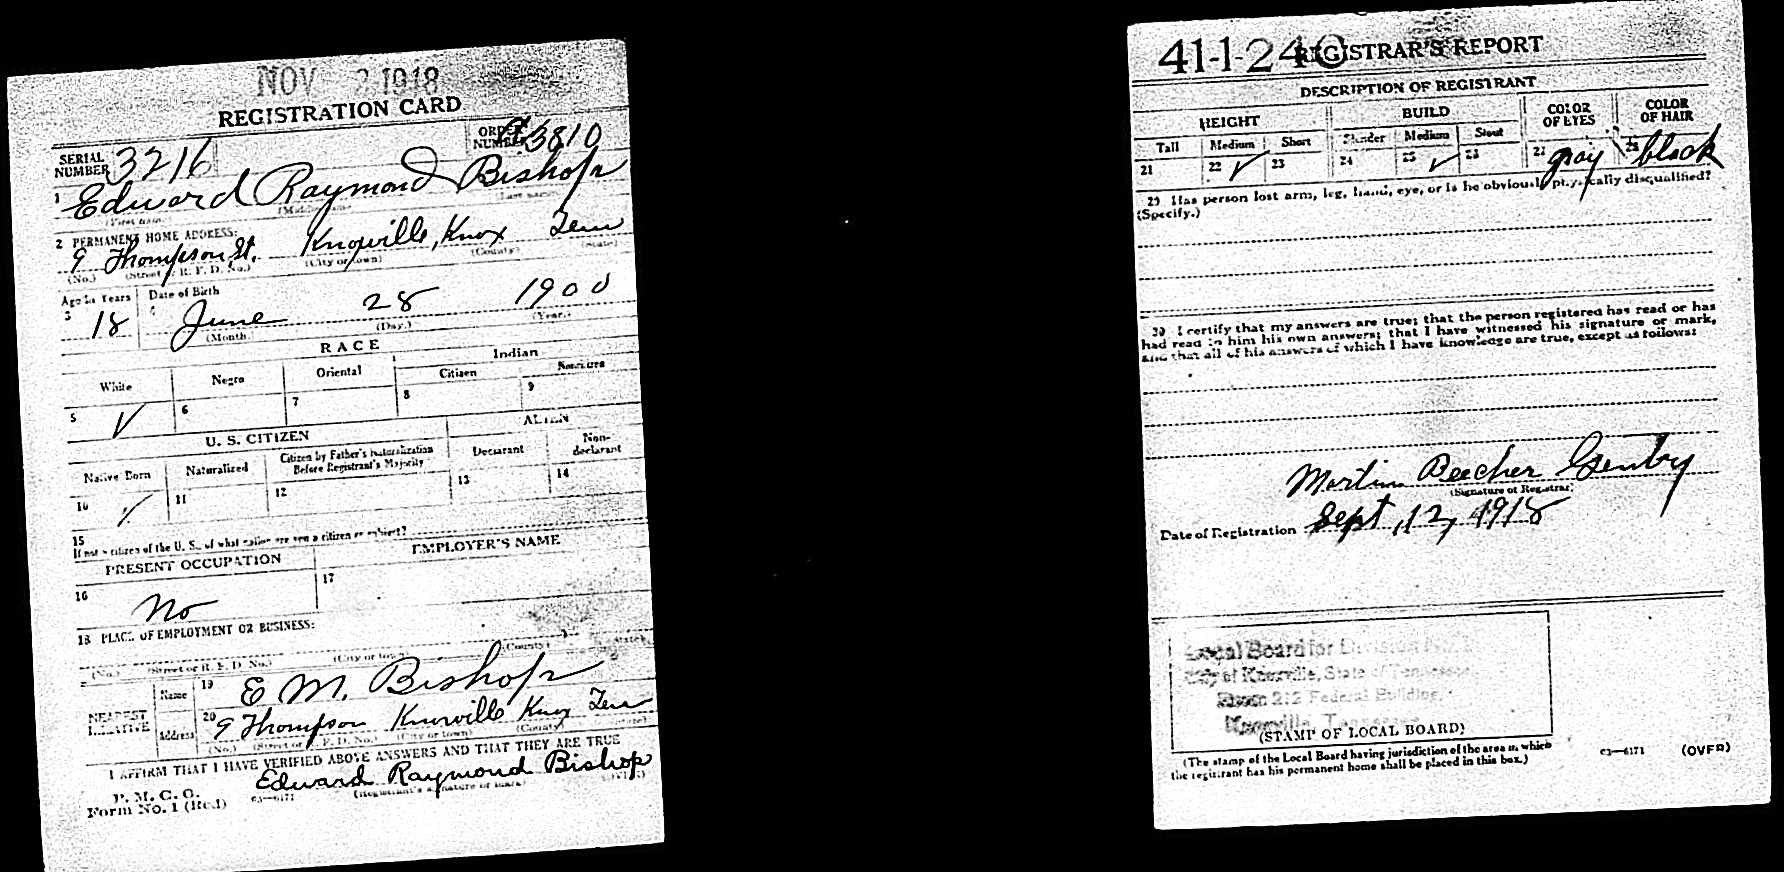 NOV 2 1918
REGISTRATION CARD
SERIAL NUMBER 3216 ORDER NUMBER 3810
1 Edward Raymond Bishop
(First name) (Middle name) (Last name)
2 PERMANENT HOME ADDRESS:
9 Thompson St. Knoxville, Knox Tenn
(No.) (Street or R. F. D. No.) (City or town) (County) (State)
Age in Years Date of Birth
3 18 4 June 28 1900
(Month.) (Day.) (Year.)
RACE
White Negro Oriental Indian
Citizen Noncitizen
5 ✓ 6 7 8 9
U. S. CITIZEN ALIEN
Native Born Naturalized Citizen by Father's Naturalization Before Registrant's Majority Declarant Non-declarant
10 ✓ 11 12 13 14
15
If not a citizen of the U. S., of what nation are you a citizen or subject?
PRESENT OCCUPATION EMPLOYER'S NAME
16 No 17
18 PLACE OF EMPLOYMENT OR BUSINESS:
(No.) (Street or R. F. D. No.) (City or town) (County) (State)
NEAREST RELATIVE Name 19 E M. Bishop
Address 20 9 Thompson Knoxville Knox Tenn
(No.) (Street or R. F. D. No.) (City or town) (County) (State)
I AFFIRM THAT I HAVE VERIFIED ABOVE ANSWERS AND THAT THEY ARE TRUE
P. M. G. O.
Form No. 1 (Red) 03—6171 Edward Raymond Bishop
(Registrant's signature or mark) (OVER)
41-1-24 C
REGISTRAR'S REPORT
DESCRIPTION OF REGISTRANT
HEIGHT BUILD COLOR OF EYES COLOR OF HAIR
Tall Medium Short Slender Medium Stout
21 22 ✓ 23 24 25 ✓ 26 27 gray 28 black
29 Has person lost arm, leg, hand, eye, or is he obviously physically disqualified?
(Specify.)
30 I certify that my answers are true; that the person registered has read or has
had read to him his own answers; that I have witnessed his signature or mark,
and that all of his answers of which I have knowledge are true, except as follows:
Martin Beecher Gentry
(Signature of Registrar)
Date of Registration Sept. 12, 1918
Local Board for Division No.
City of Knoxville, State of Tennessee,
Room 212 Federal Building,
Knoxville, Tennessee
(STAMP OF LOCAL BOARD)
(The stamp of the Local Board having jurisdiction of the area in which
the registrant has his permanent home shall be placed in this box.)
03—6171 (OVER)